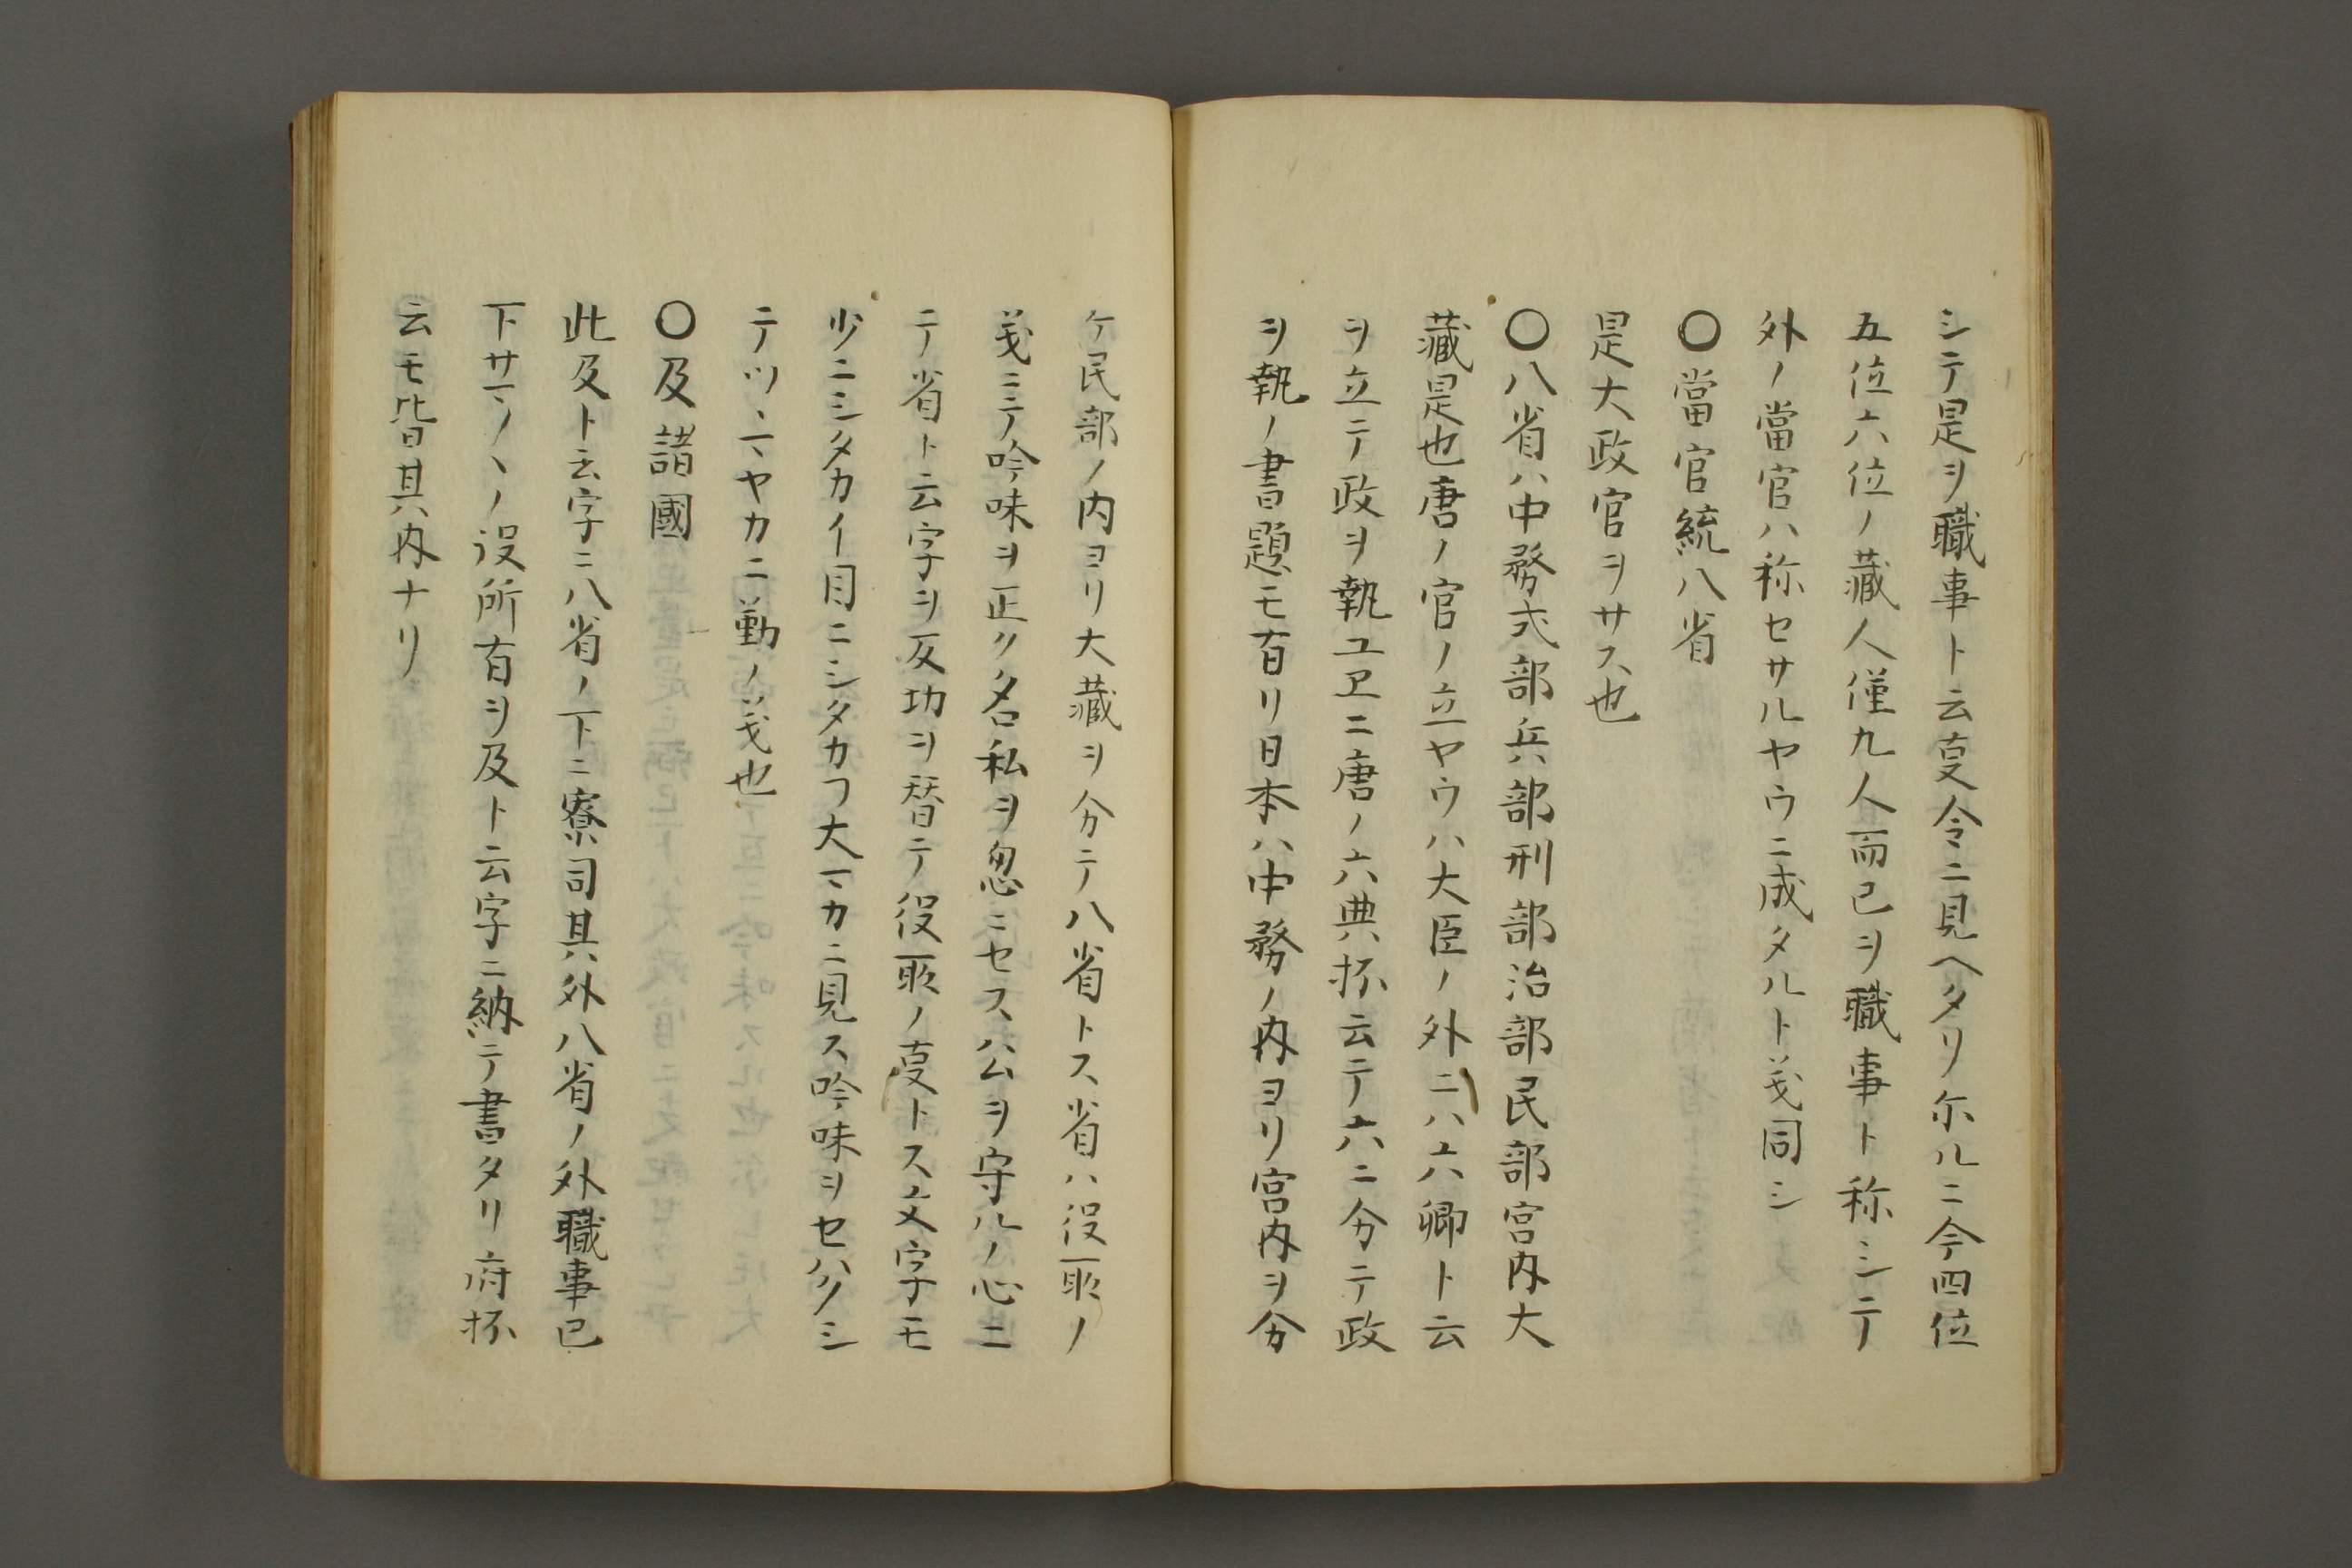 シテ是ヲ職事ト云叓令ニ見ヘタリ尓ルニ今四位
五位六位ノ藏人僅九人而已ヲ職事ト称シテ
外ノ當官ハ称セサルヤウニ成タルト䒾同シ
〇當官統八省
是大政官ヲサス也
〇八省ハ中務式部兵部刑部治部民部宮内大
藏是也唐ノ官ノ立ヤウハ大臣ノ外ニハ六卿ト云
ヲ立テ政ヲ執ユヱニ唐ノ六典抔云テ六ニ分テ政
ヲ執ノ書題モ有リ日本ハ中務ノ内ヨリ宮内ヲ分
ケ民部ノ内ヨリ大藏ヲ分テ八省トス省ハ役所ノ
䒾ニテ吟味ヲ正クノ名私ヲ忽ニセスハ公ヲ守ルノ心ニ
テ省ト云字ヲ反切ヲ替テ役所ノ叓トス文字モ
少ニシタカイ目ニシタカフ大マカニ見ス吟味ヲセハクシ
テツヽマヤカニ勤ノ䒾也
〇及諸國
此及ト云字ニ八省ノ下ニ寮司其外八省ノ外職事已
下サマ〱ノ役所有ヲ及ト云字ニ納テ書タリ府抔
云モ皆其内ナリ